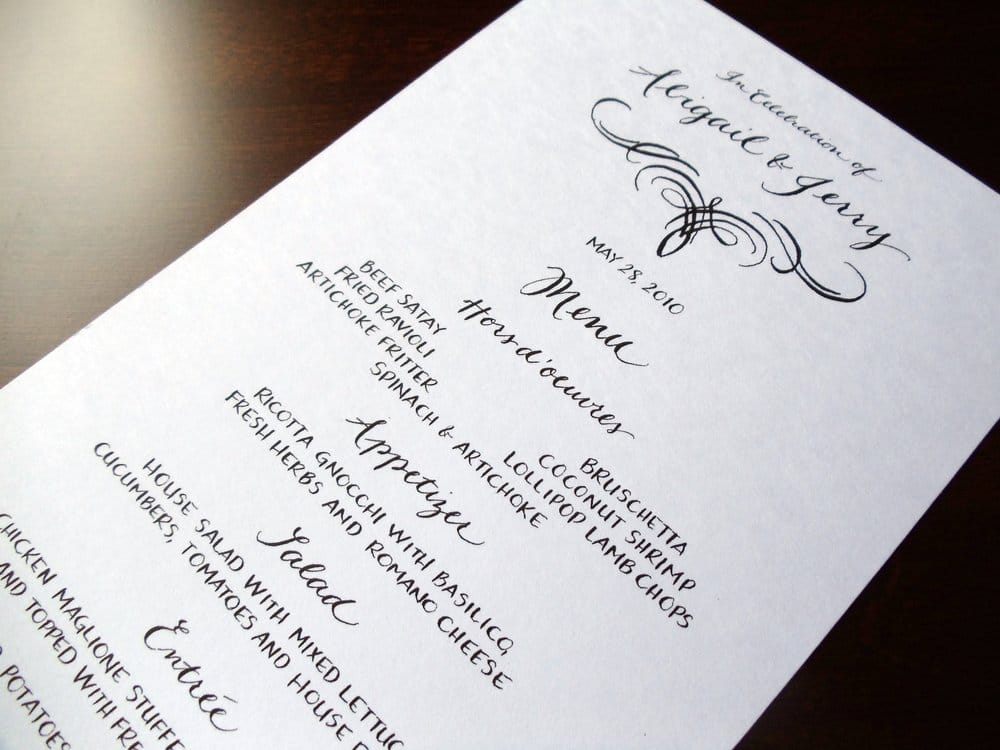 In Celebration of
Abigail & Jerry
MAY 28, 2010
Menu
Hors d'oeuvres
BEEF SATAY
FRIED RAVIOLI
ARTICHOKE FRITTER
BRUSCHETTA
COCONUT SHRIMP
LOLLIPOP LAMB CHOPS
SPINACH & ARTICHOKE
Appetizer
RICOTTA GNOCCHI WITH BASILICO,
FRESH HERBS AND ROMANO CHEESE
Salad
HOUSE SALAD WITH MIXED LETTUC
CUCUMBERS, TOMATOES AND HOUSE
Entrée
CHICKEN MAGLIONE STUFFE
AND TOPPED WITH FRE
POTATOES